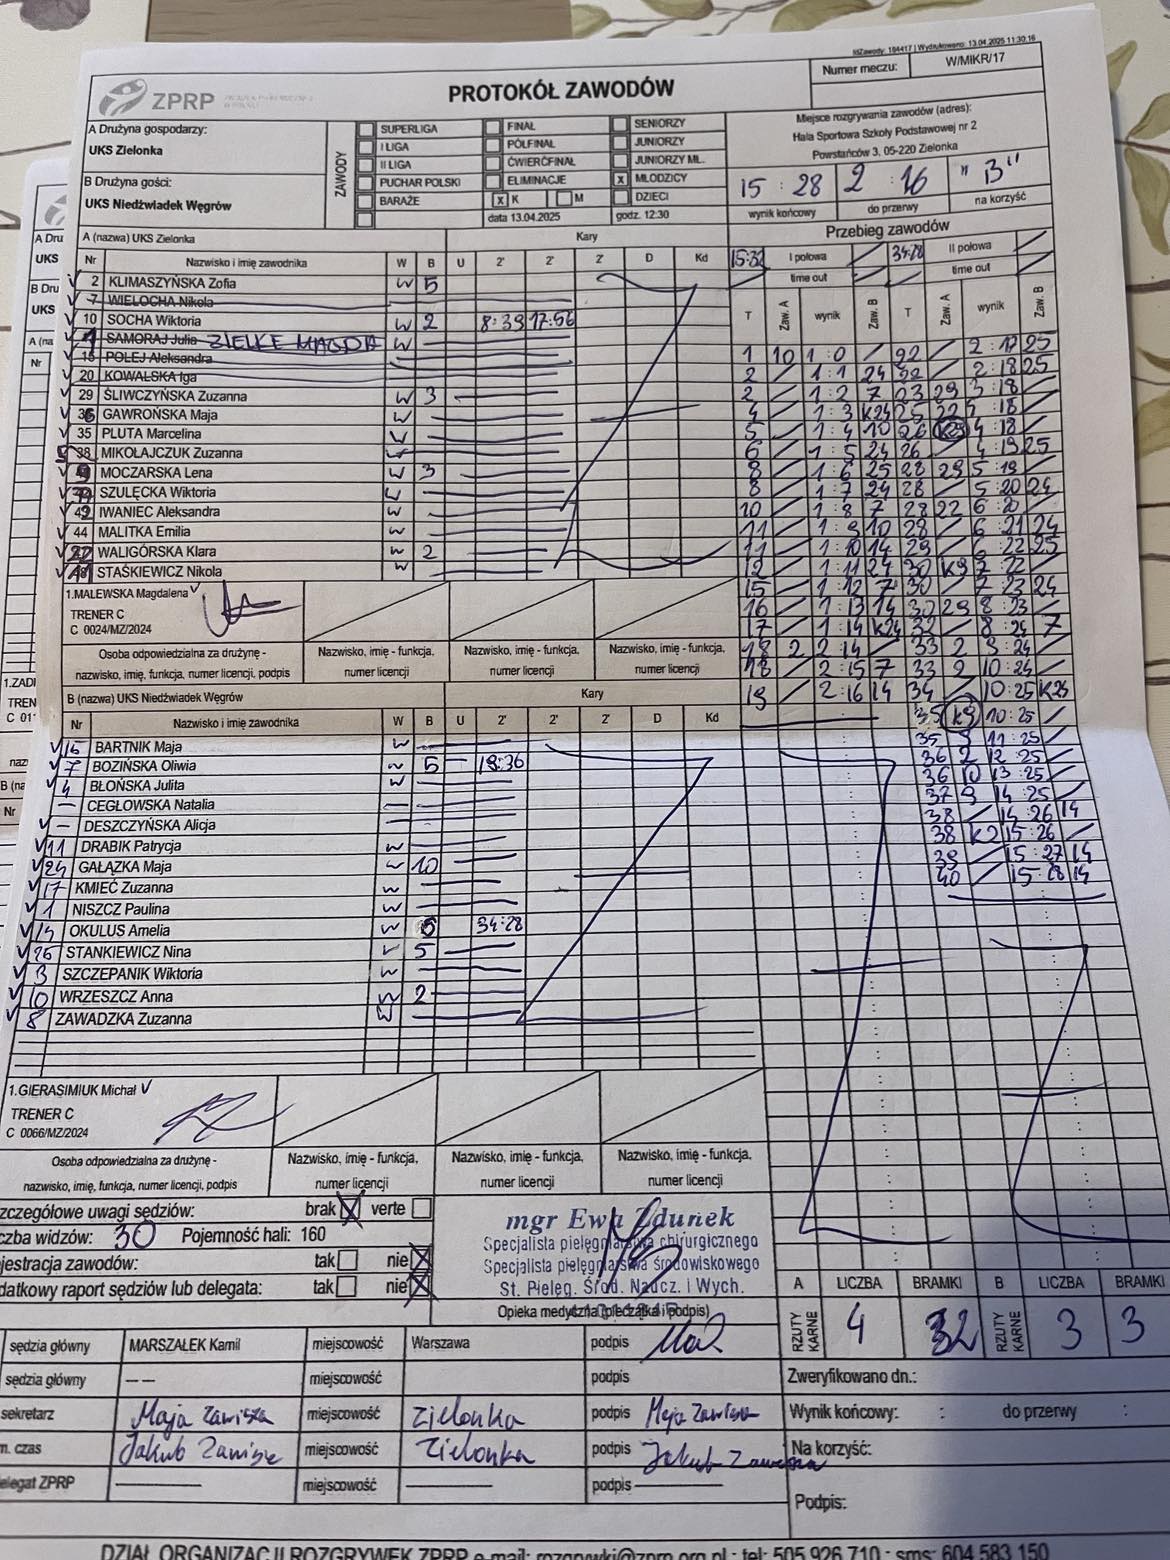 IdZawody: 184417 | Wydrukowano: 13.04.2025 11:30:16
Numer meczu: W/MIKR/17
ZPRP
PROTOKÓŁ ZAWODÓW
A Drużyna gospodarzy:
UKS Zielonka
B Drużyna gości:
UKS Niedźwiadek Węgrów
ZAWODY
SUPERLIGA FINAŁ SENIORZY
I LIGA PÓŁFINAŁ JUNIORZY
II LIGA ĆWIERĆFINAŁ JUNIORZY MŁ.
PUCHAR POLSKI ELIMINACJE X MŁODZICY
BARAŻE X K M DZIECI
data 13.04.2025 godz. 12:30
Miejsce rozgrywania zawodów (adres):
Hala Sportowa Szkoły Podstawowej nr 2
Powstańców 3, 05-220 Zielonka
15 : 28 2 : 16 "B"
wynik końcowy do przerwy na korzyść
A (nazwa) UKS Zielonka Kary
Nr Nazwisko i imię zawodnika W B U 2' 2' 2' D Kd
2 KLIMASZYŃSKA Zofia W 5
7 WIELOCHA Nikola
10 SOCHA Wiktoria W 2 8:39 17:56
SAMORAJ Julia ZIELKE MAGDA W
15 POLEJ Aleksandra
20 KOWALSKA Iga
29 ŚLIWCZYŃSKA Zuzanna W 3
GAWROŃSKA Maja W
35 PLUTA Marcelina W
38 MIKOŁAJCZUK Zuzanna W
MOCZARSKA Lena W 3
SZULĘCKA Wiktoria W
IWANIEC Aleksandra W
44 MALITKA Emilia W
WALIGÓRSKA Klara W 2
STAŚKIEWICZ Nikola W
1.MALEWSKA Magdalena
TRENER C
C 0024/MZ/2024
Osoba odpowiedzialna za drużynę - Nazwisko, imię - funkcja, Nazwisko, imię - funkcja, Nazwisko, imię - funkcja,
nazwisko, imię, funkcja, numer licencji, podpis numer licencji numer licencji numer licencji
B (nazwa) UKS Niedźwiadek Węgrów Kary
Nr Nazwisko i imię zawodnika W B U 2' 2' 2' D Kd
16 BARTNIK Maja W
7 BOZIŃSKA Oliwia W 5 18:36
4 BŁOŃSKA Julita W
— CEGŁOWSKA Natalia
— DESZCZYŃSKA Alicja
11 DRABIK Patrycja W
24 GAŁĄZKA Maja W 10
17 KMIEĆ Zuzanna W
1 NISZCZ Paulina W
14 OKULUS Amelia W 34:28
STANKIEWICZ Nina 5
3 SZCZEPANIK Wiktoria W
10 WRZESZCZ Anna W 2
8 ZAWADZKA Zuzanna W
1.GIERASIMIUK Michał
TRENER C
C 0066/MZ/2024
Osoba odpowiedzialna za drużynę - Nazwisko, imię - funkcja, Nazwisko, imię - funkcja, Nazwisko, imię - funkcja,
nazwisko, imię, funkcja, numer licencji, podpis numer licencji numer licencji numer licencji
Przebieg zawodów
15:32 I połowa 34:28 II połowa
time out time out
T Zaw. A wynik Zaw. B T Zaw. A wynik Zaw. B
1 10 1 : 0 / 22 / 2 : 17 25
2 / 1 : 1 24 22 / 2 : 18 25
2 / 1 : 2 7 23 29 3 : 18 /
4 / 1 : 3 K24 25 22 : 18 /
5 / 1 : 4 10 26 4 : 18 /
6 / 1 : 5 24 26 / 4 : 19 25
8 / 1 : 6 25 28 29 5 : 19 /
8 / 1 : 7 24 28 / 5 : 20 24
10 / 1 : 8 7 28 22 6 : 20 /
11 / 1 : 9 10 28 / 6 : 21 24
11 / 1 : 10 14 29 / 6 : 22 25
12 / 1 : 11 24 30 K9 7 : 22 /
15 / 1 : 12 7 30 / 7 : 23 24
16 / 1 : 13 14 30 29 8 : 23 /
17 / 1 : 14 K24 32 / 8 : 24 7
18 2 2 : 14 / 33 2 9 : 24 /
18 / 2 : 15 7 33 2 10 : 24 /
19 / 2 : 16 14 34 / 10 : 25 K25
35 K9 10 : 25 /
35 9 11 : 25 /
36 2 12 : 25 /
36 10 13 : 25 /
37 9 14 : 25 /
38 / 14 : 26 14
38 K2 15 : 26 /
39 / 15 : 27 14
40 / 15 : 28 14
zczegółowe uwagi sędziów: brak X verte
czba widzów: 30 Pojemność hali: 160
jestracja zawodów: tak nie X
datkowy raport sędziów lub delegata: tak nie X
mgr Ewa Zdunek
Specjalista pielęgniarstwa chirurgicznego
Specjalista pielęgniarstwa środowiskowego
St. Pielęg. Środ. Naucz. i Wych.
Opieka medyczna (pieczątka i podpis)
A LICZBA BRAMKI B LICZBA BRAMKI
RZUTY KARNE 4 2 RZUTY KARNE 3 3
sędzia główny MARSZAŁEK Kamil miejscowość Warszawa podpis
sędzia główny — — miejscowość podpis
sekretarz Maja Zawisza miejscowość Zielonka podpis Maja Zawisza
m. czas Jakub Zawisza miejscowość Zielonka podpis Jakub Zawisza
elegat ZPRP miejscowość podpis
Zweryfikowano dn.:
Wynik końcowy: : do przerwy :
Na korzyść:
Podpis:
DZIAŁ ORGANIZACJI ROZGRYWEK ZPRP e-mail: rozgrywki@zprp.org.pl ; tel: 505 926 710 ; sms: 604 583 150